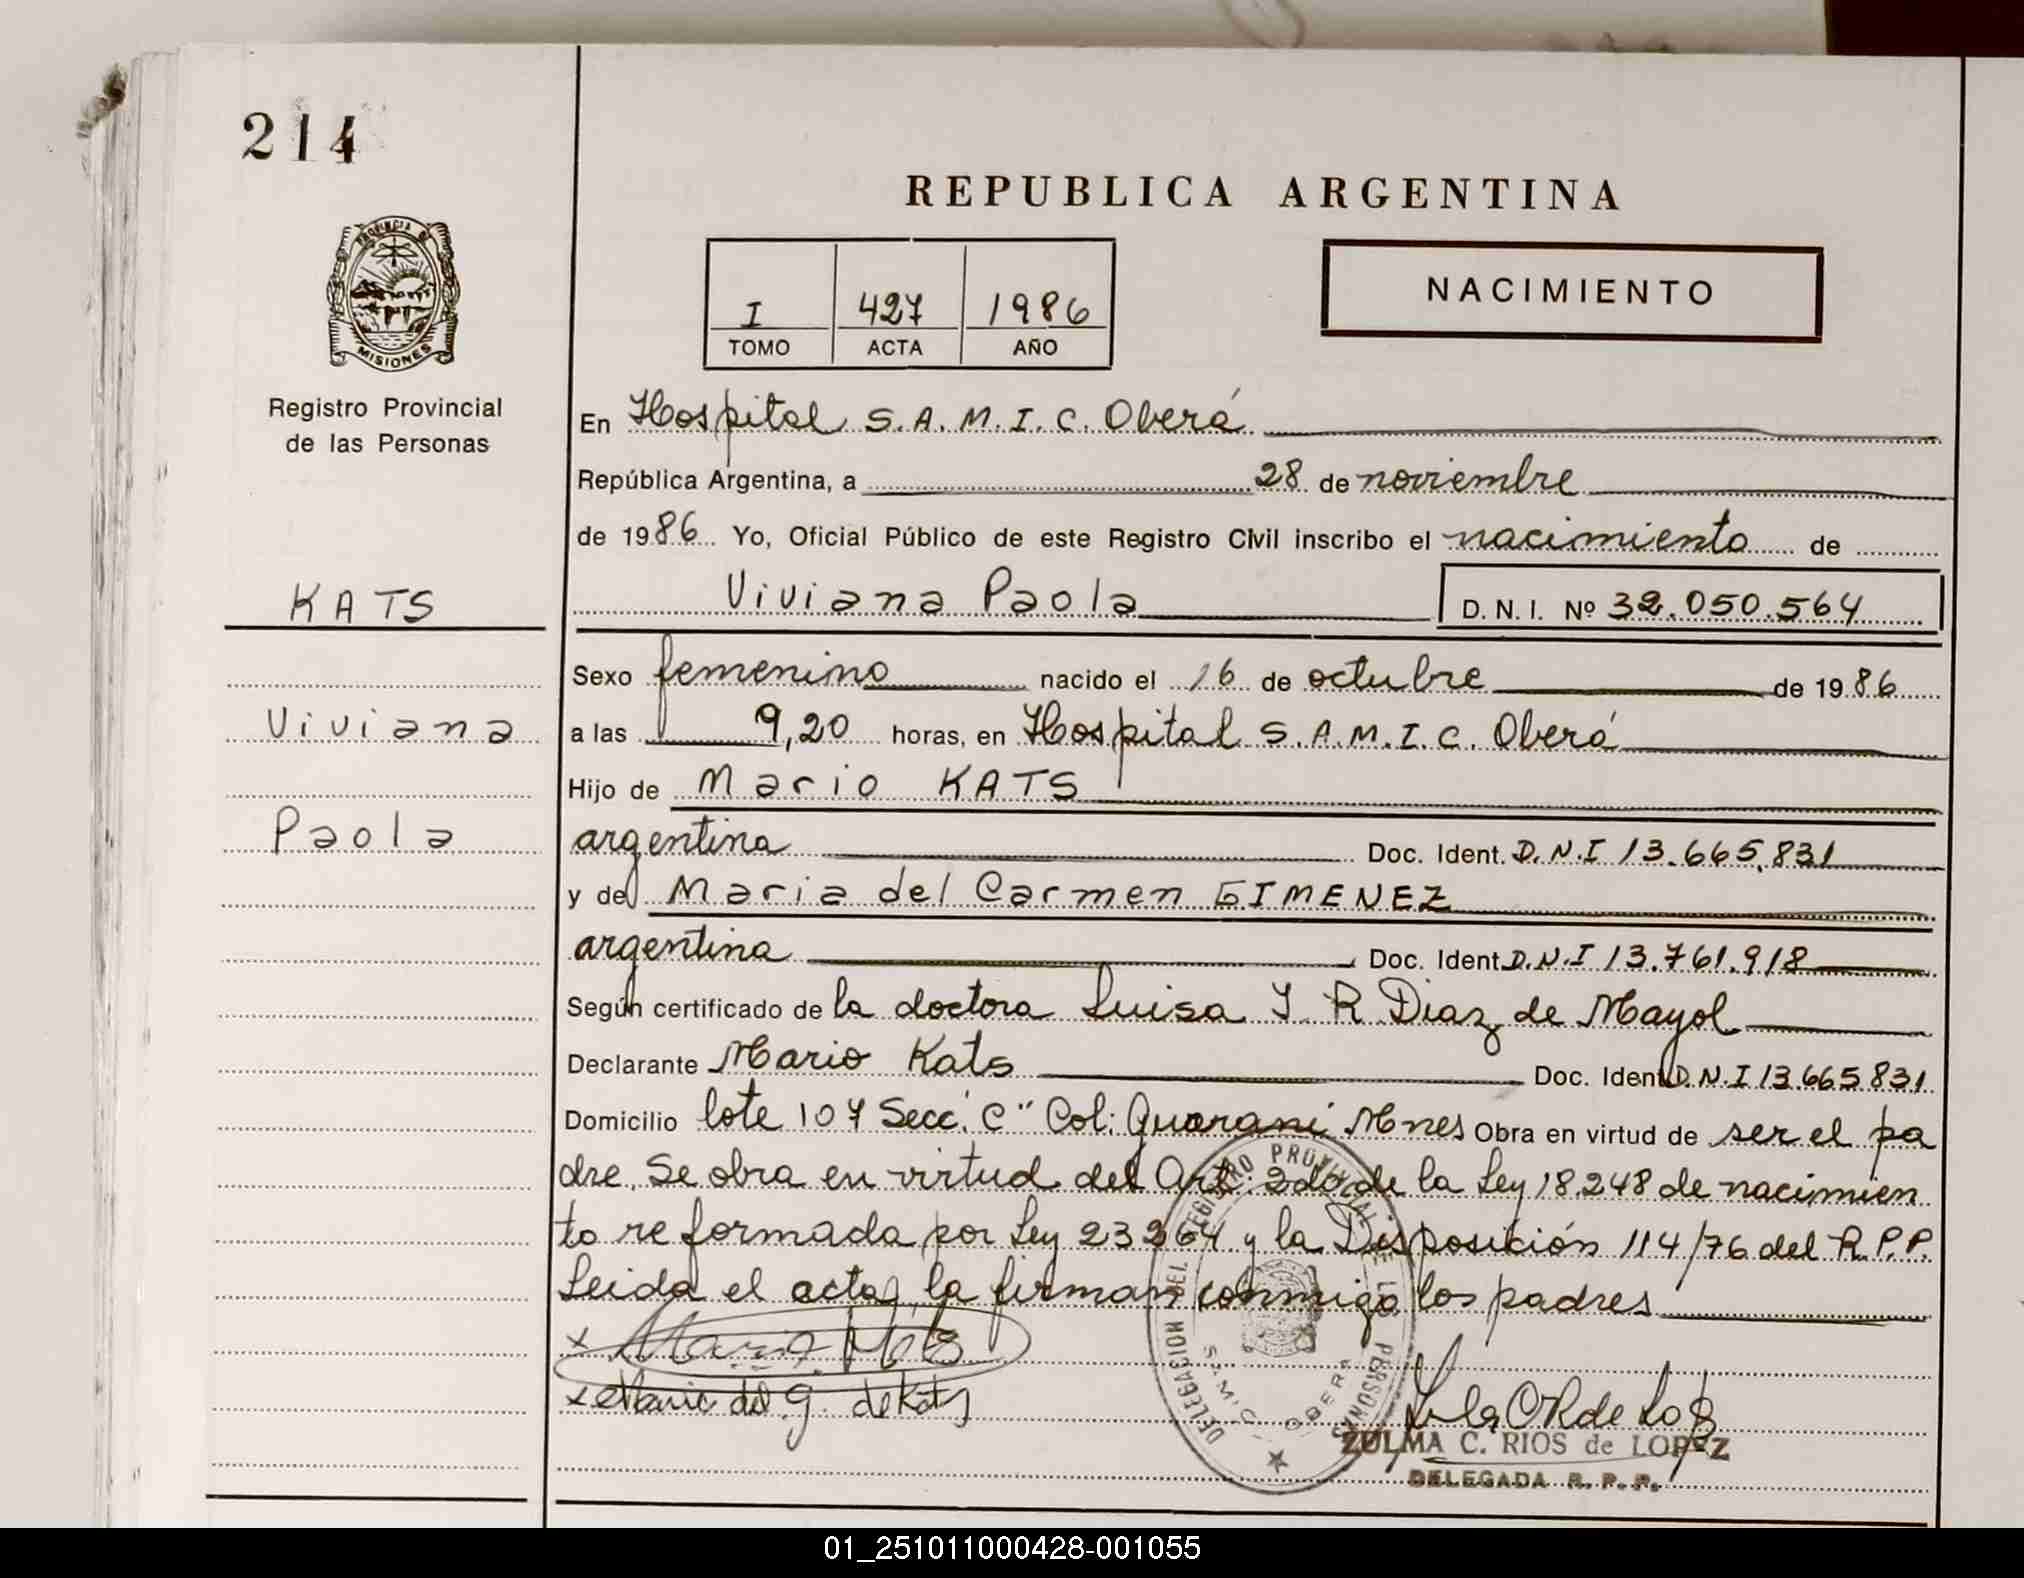 214
REPUBLICA ARGENTINA
I 427 1986
TOMO ACTA AÑO
NACIMIENTO
PROVINCIA DE
MISIONES
Registro Provincial
de las Personas
En Hospital S.A.M.I.C. Oberá
República Argentina, a 28 de noviembre
de 1986 Yo, Oficial Público de este Registro Civil inscribo el nacimiento de
KATS
Viviana Paola D.N.I. Nº 32.050.564
Sexo femenino nacido el 16 de octubre de 1986
Viviana
a las 9,20 horas, en Hospital S.A.M.I.C. Oberá
Hijo de Mario KATS
Paola
argentina Doc. Ident. D.N.I 13.665.831
y de Maria del Carmen GIMENEZ
argentina Doc. Ident. D.N.I 13.761.918
Según certificado de la doctora Luisa Y. R Diaz de Mayol
Declarante Mario Kats Doc. Ident. D.N.I 13.665.831
Domicilio lote 107 Secc. "C" Col: Guarani Mnes Obra en virtud de ser el pa
dre. Se obra en virtud del Art: 2do de la Ley 18.248 de nacimien
to reformada por Ley 23264 y la Disposición 114/76 del R.P.P.
Leida el acta, la firman conmigo los padres
x Mario Kats
x Maria del G. de Kats
DELEGACION DEL REGISTRO PROVINCIAL DE LAS PERSONAS
S.A.M.I.C. OBERA
ZULMA C. RIOS de LOPEZ
DELEGADA R. P. P.
01_251011000428-001055